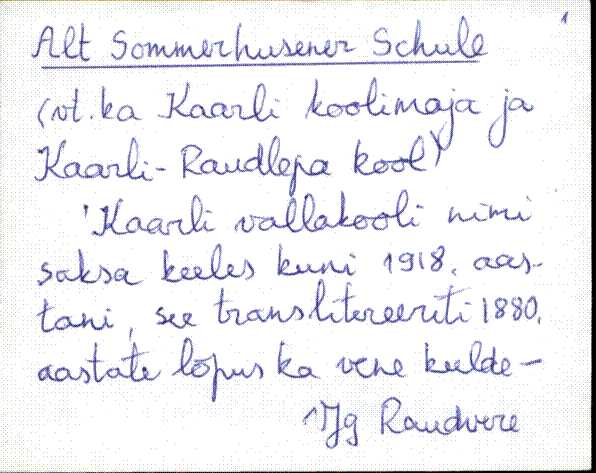 1
Alt Sommerhusener Schule
(vt. ka Kaarli koolimaja ja
Kaarli-Raudlepa kool)
'Kaarli vallakooli nimi
saksa keeles kuni 1918. aas-
tani, see translitereeriti 1880.
aastate lõpus ka vene keelde -
Jg Raudvere